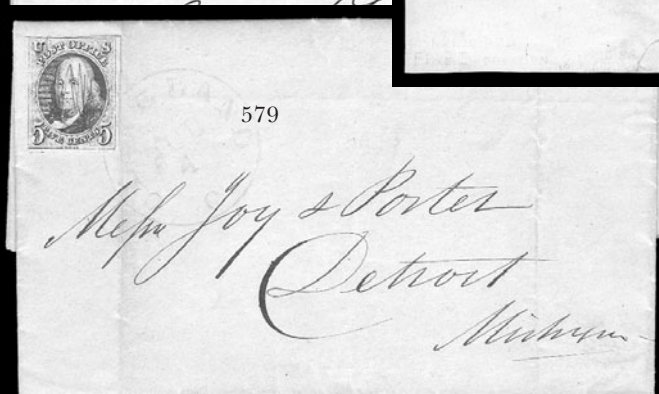 U S
POST OFFICE
5 FIVE CENTS 5
579
Messrs Joy & Porter
Detroit
Michigan